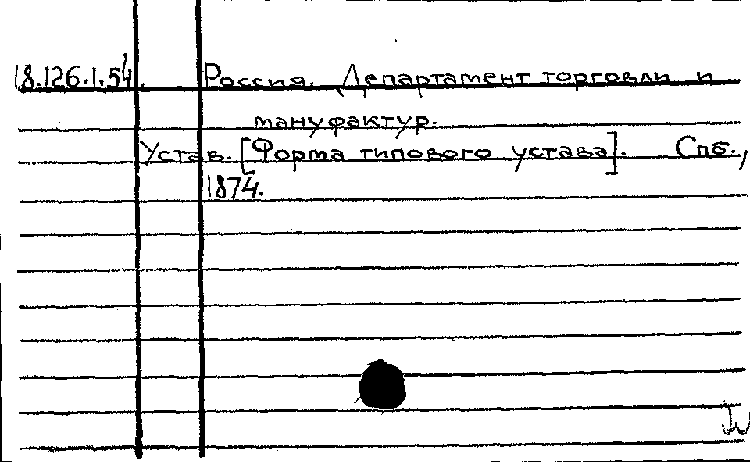 18.126.1.54. Россия. Департамент торговли и
мануфактур.
Устав. [Форма типового устава]. Спб.,
1874.